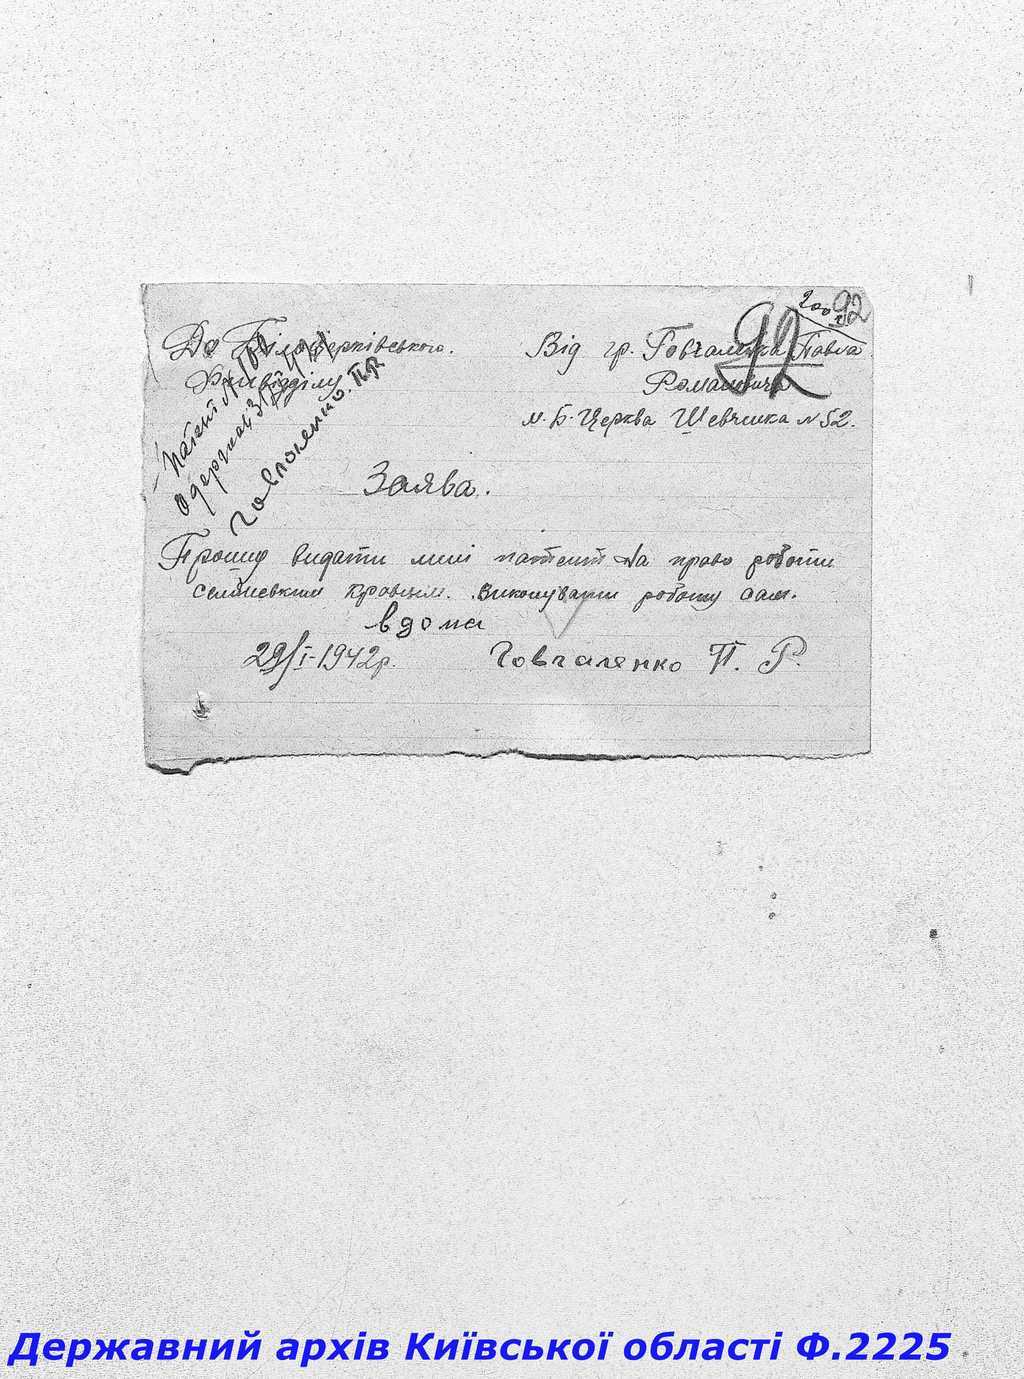 200 92
До Білоцерківського.
Від гр. Говгаленка Павла
92
Фінвідділу
Романовича
м. Б-Церква Шевченка №52.
Патент № 100
одержав
Говгаленко. П.Р
Заява.
Прошу видати мені патент на право роботи
кравцем. виконувати роботу сам.
вдома
29/I-1942р.
Говгаленко П. Р.
Державний архів Київської області Ф.2225